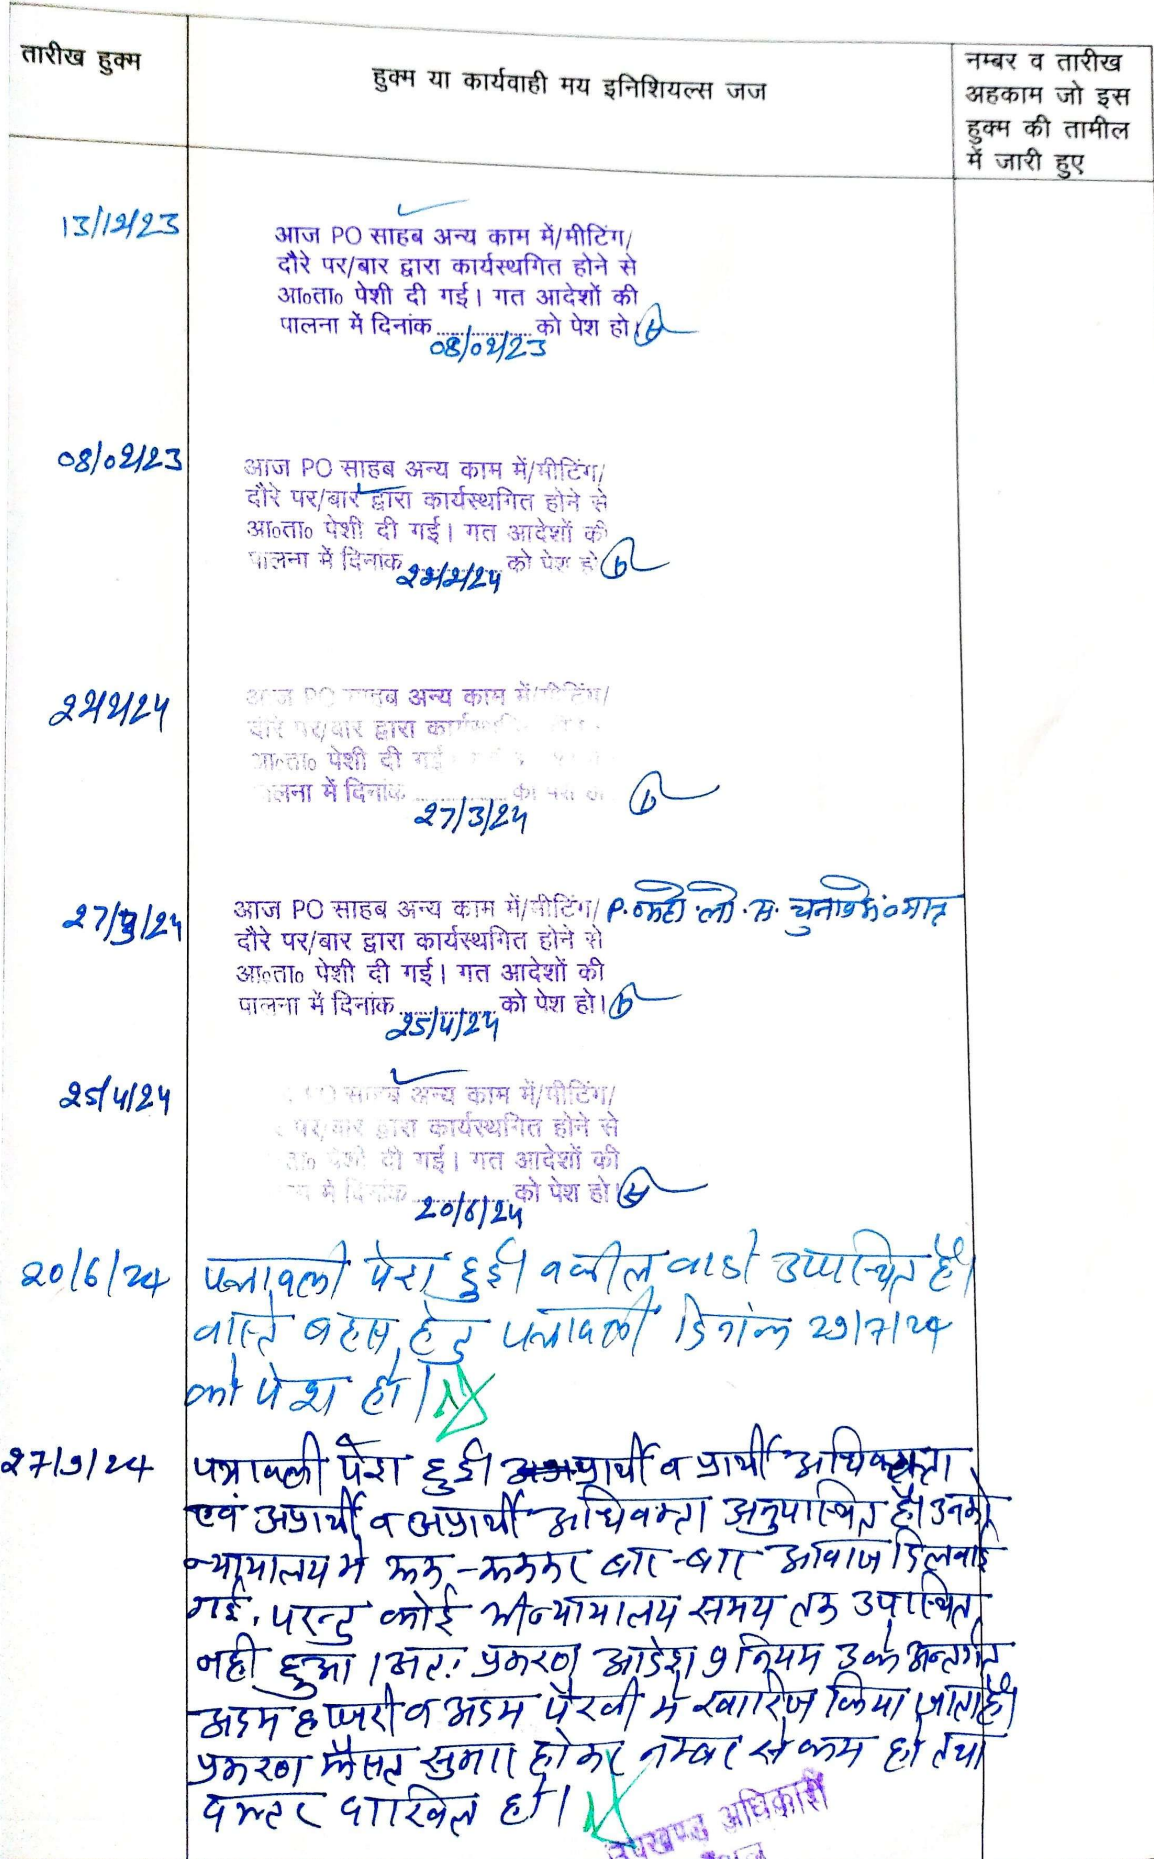 तारीख हुक्म
हुक्म या कार्यवाही मय इनिशियल्स जज
नम्बर व तारीख
अहकाम जो इस
हुक्म की तामील
में जारी हुए
13/12/23
आज PO साहब अन्य काम में/मीटिंग/
दौरे पर/बार द्वारा कार्यस्थगित होने से
आ०ता० पेशी दी गई। गत आदेशों की
पालना में दिनांक ............... को पेश हो।
08/02/23
08/02/23
आज PO साहब अन्य काम में/मीटिंग/
दौरे पर/बार द्वारा कार्यस्थगित होने से
आ०ता० पेशी दी गई। गत आदेशों की
पालना में दिनांक ............... को पेश हो
22/2/24
22/2/24
आज PO साहब अन्य काम में/मीटिंग/
दौरे पर/बार द्वारा
आ०ता० पेशी दी गई
पालना में दिनांक ...............
27/3/24
27/3/24
आज PO साहब अन्य काम में/मीटिंग/
दौरे पर/बार द्वारा कार्यस्थगित होने से
आ०ता० पेशी दी गई। गत आदेशों की
पालना में दिनांक ............... को पेश हो।
25/4/24
25/4/24
PO साहब अन्य काम में/मीटिंग/
पर/बार द्वारा कार्यस्थगित होने से
ता० पेशी दी गई। गत आदेशों की
में दिनांक ............... को पेश हो।
20/6/24
20/6/24 पत्रावली पेश हुई। वकील वादी उपस्थित है।
वास्ते बहस हेतु पत्रावली दिनांक 29/7/24
को पेश हो।
27/9/24 पत्रावली पेश हुई। प्रार्थी व प्रार्थी अधिवक्ता
एवं अप्रार्थी व अप्रार्थी अधिवक्ता अनुपस्थित है। उनको
न्यायालय में रूक-रूककर बार-बार आवाज दिलवाई
गई, परन्तु कोई भी न्यायालय समय तक उपस्थित
नही हुआ। अतः प्रकरण आदेश 9 नियम 3 के अन्तर्गत
अदम हाजरी व अदम पैरवी में खारिज किया जाता है।
प्रकरण फैसल सुमार होकर नम्बर से कम हो तथा
दफ्तर दाखिल हो।
उपखण्ड अधिकारी